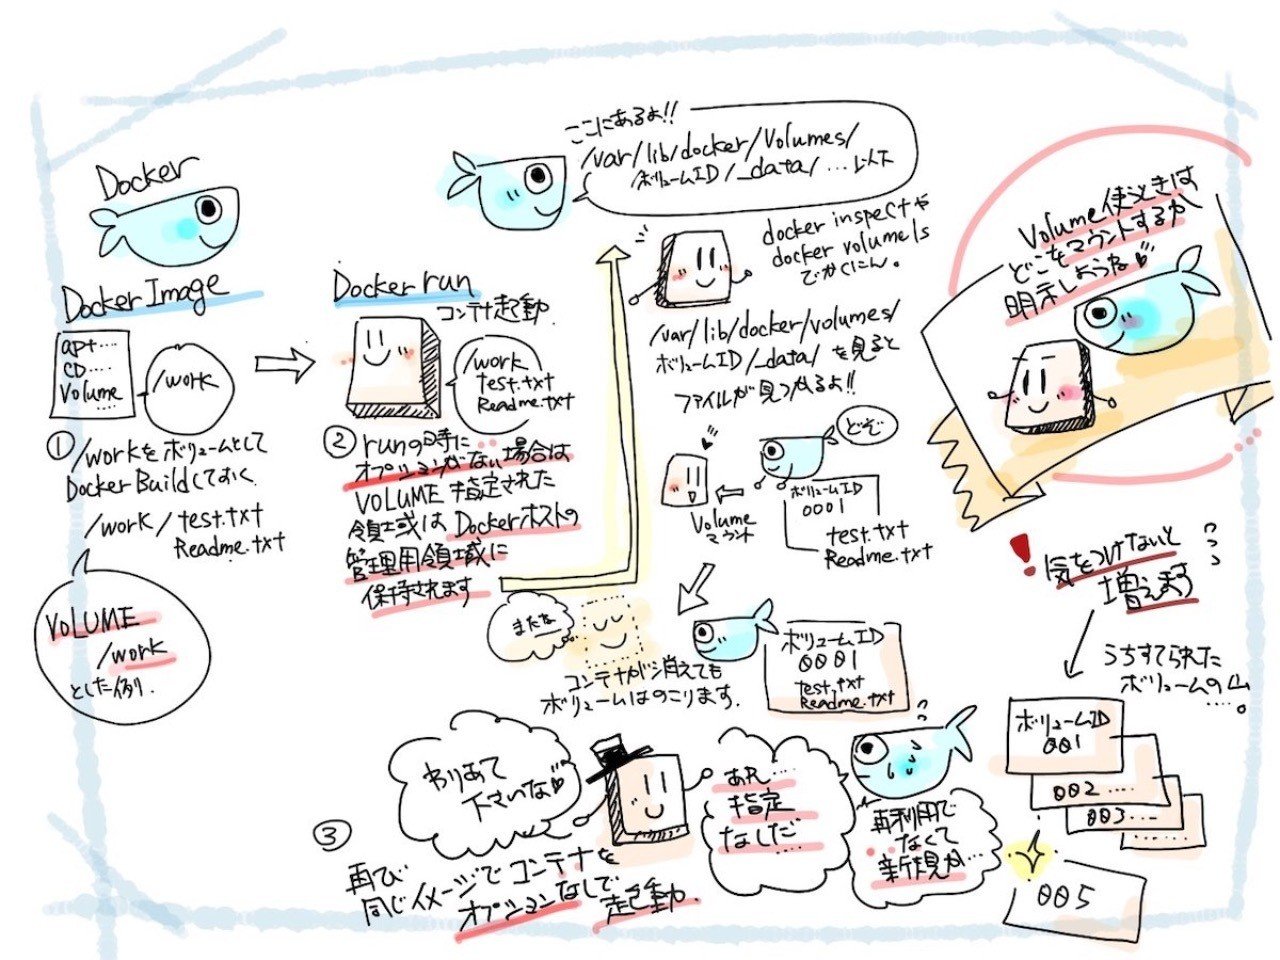 Docker
Docker Image
apt....
CD.....
Volume
....
/work
① /workをボリュームとして
Docker Buildしておく
/work/test.txt
Readme.txt
VOLUME
/work
とした例り.
Docker run
コンテナ起動
/work
test.txt
Readme.txt
② runの時に
オプションがない場合は
VOLUME 指定された
領域は Dockerホストの
管理用領域に
保持されます
ここにあるよ!!
/var/lib/docker/Volumes/
ボリュームID/_data/...以下
docker inspectや
docker volume ls
でかくにん。
/var/lib/docker/volumes/
ボリュームID/_data/を見ると
ファイルが見つかるよ!!
どぞ
ボリュームID
0001
test.txt
Readme.txt
Volume
マウント
またな
コンテナが消えても
ボリュームはのこります.
ボリュームID
0001
test.txt
Readme.txt
③ 再び
同じイメージでコンテナを
オプションなしで起動.
わりあて
下さいな
あれ...
指定
なしだ...
再利用で
なくて
新規か...
Volume使うときは
どこをマウントするか
明示しようね
! 気をつけないと
増えます
うちすてられた
ボリュームの山
....。
ボリュームID
001
002....
003....
....
005